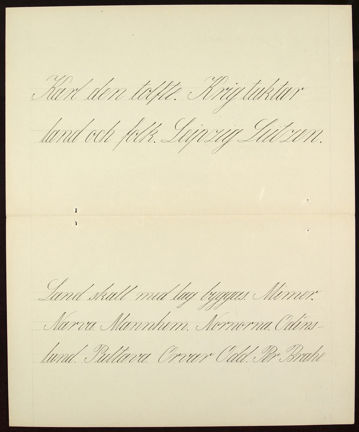 Karl den tolfte. Krig tuktar
land och folk. Leipzig Lützen.
Land skall med lag byggas. Mimer.
Narva. Mannhem. Nornorna. Odins-
lund. Pultava. Orvar Odd. Per Brahe